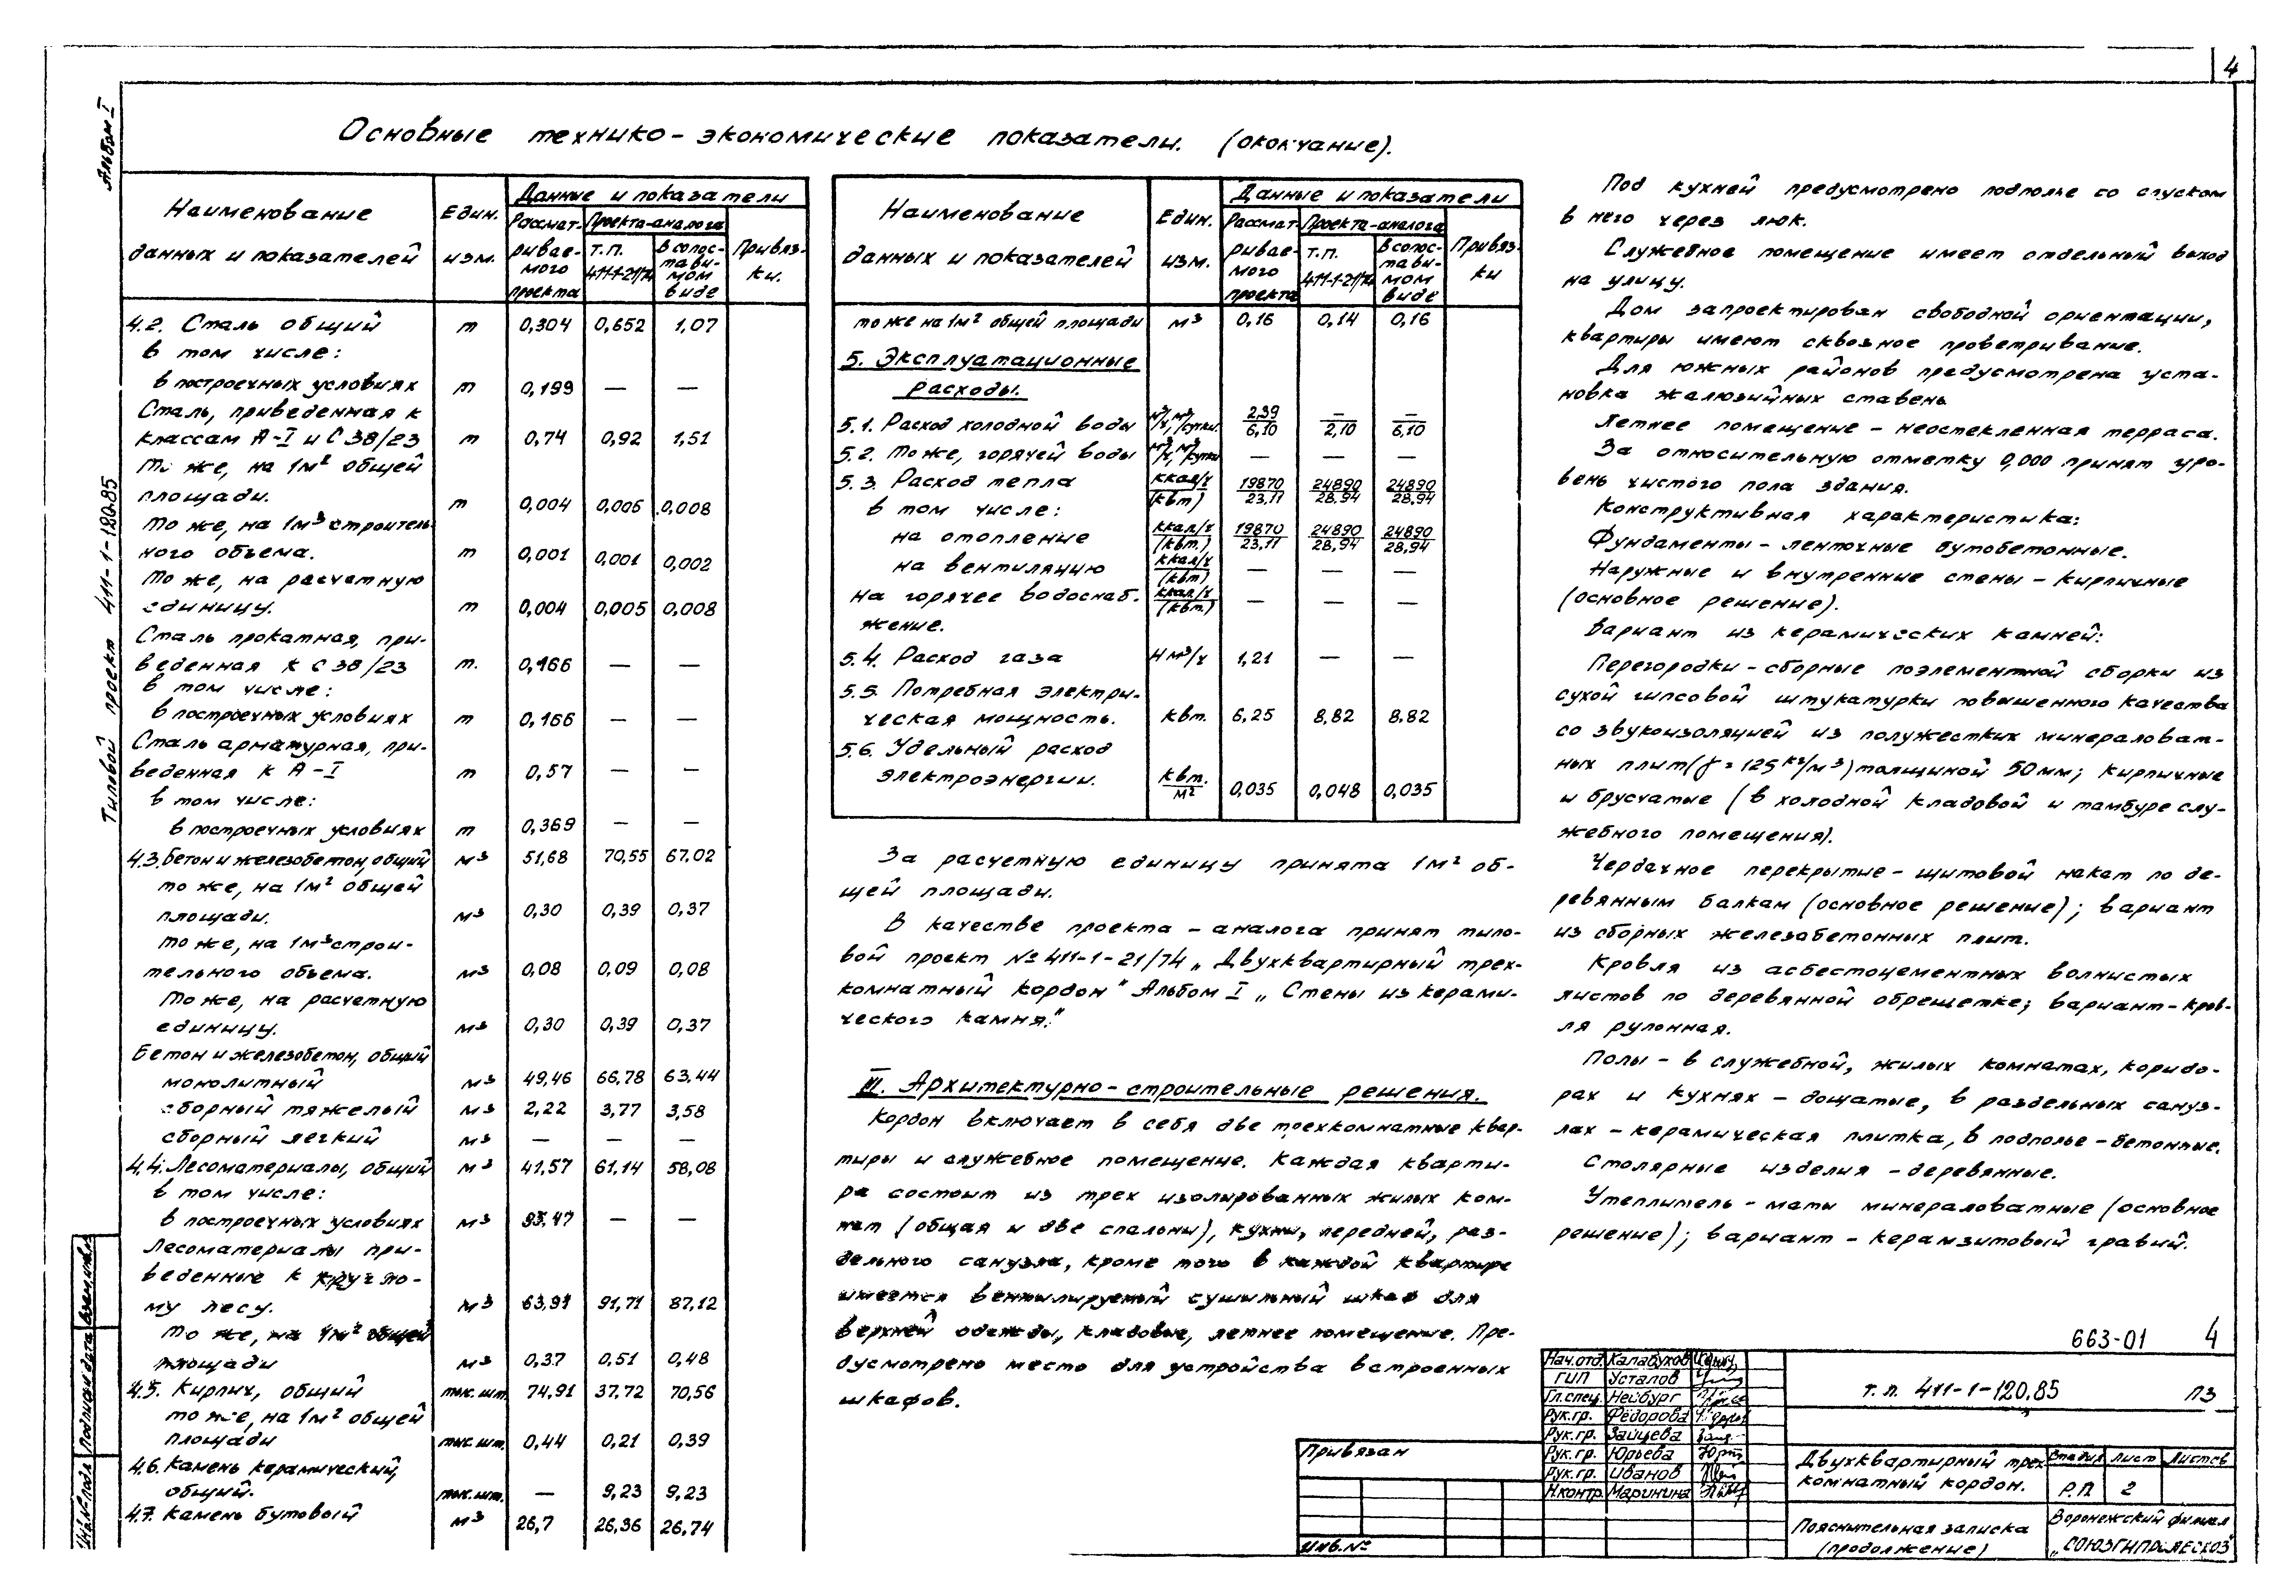 4
Альбом I
Типовой проект 411-1-120.85
Основные технико-экономические показатели. (окончание).
Наименование данных и показателей | Един. изм. | Данные и показатели
Рассматриваемого проекта | Проекта-аналога | Привязки.
Т.П. 411-1-21/74 | В сопоставимом виде
4.2. Сталь общий т 0,304 0,652 1,07
в том числе:
в построечных условиях т 0,199 — —
Сталь, приведенная к
классам А-I и С 38/23 т 0,74 0,92 1,51
То же, на 1м² общей
площади. т 0,004 0,006 0,008
То же, на 1м³ строитель
ного объема. т 0,001 0,001 0,002
То же, на расчетную
единицу. т 0,004 0,005 0,008
Сталь прокатная, при-
веденная к С 38/23 т. 0,166 — —
в том числе:
в построечных условиях т 0,166 — —
Сталь арматурная, при-
веденная к А-I т 0,57 — —
в том числе:
в построечных условиях т 0,369 — —
4.3. Бетон и железобетон, общий м³ 51,68 70,55 67.02
то же, на 1м² общей
площади. м³ 0,30 0,39 0,37
то же, на 1м³ строи-
тельного объема. м³ 0,08 0,09 0,08
То же, на расчетную
единицу. м³ 0,30 0,39 0,37
Бетон и железобетон, общий
монолитный м³ 49,46 66,78 63,44
сборный тяжелый м³ 2,22 3,77 3,58
сборный легкий м³ — — —
4.4. Лесоматериалы, общий м³ 41,57 61.14 58,08
в том числе:
в построечных условиях м³ — —
Лесоматериалы при-
веденные к кругло-
му лесу. м³ 63,91 91,71 87,12
то же, на 1м² общей
площади м³ 0,37 0,51 0,48
4.5. Кирпич, общий тыс. шт. 74,91 37,72 70,56
то же, на 1м² общей
площади тыс. шт. 0,44 0,21 0,39
4.6. Камень керамический,
общий. тыс. шт. — 9,23 9,23
4.7. Камень бутовый м³ 26,7 26,36 26,74
Наименование данных и показателей | Един. изм. | Данные и показатели
Рассматриваемого проекта | Проекта-аналога | Привязки
Т.П. 411-1-21/74 | В сопоставимом виде
то же на 1м² общей площади м³ 0,16 0,14 0,16
5. Эксплуатационные
расходы.
5.1. Расход холодной воды м³/ч, м³/сутки. 2,39/6,10 —/2,10 —/6,10
5.2. То же, горячей воды м³/ч, м³/сутки — — —
5.3. Расход тепла ккал/ч/(квт) 19870/23,11 24890/28.94 24890/28,94
в том числе:
на отопление ккал/ч/(квт.) 19870/23,11 24890/28,94 24890/28,94
на вентиляцию ккал/ч/(квт) — — —
на горячее водоснаб. ккал/ч/(квт.) — — —
жение.
5.4. Расход газа нм³/ч 1,21 — —
5.5. Потребная электри-
ческая мощность. квт. 6,25 8,82 8,82
5.6. Удельный расход
электроэнергии. квт./м² 0,035 0,048 0,035
За расчетную единицу принята 1м² об-
щей площади.
В качестве проекта-аналога принят типо-
вой проект № 411-1-21/74 „Двухквартирный трех-
комнатный кордон" Альбом I „Стены из керами-
ческого камня."
III. Архитектурно-строительные решения.
Кордон включает в себя две трехкомнатные квар-
тиры и служебное помещение. Каждая кварти-
ра состоит из трех изолированных жилых ком-
нат (общая и две спальни), кухни, передней, раз-
дельного санузла, кроме того в каждой квартире
имеется вентилируемый сушильный шкаф для
верхней одежды, кладовые, летнее помещение. Пре-
дусмотрено место для устройства встроенных
шкафов.
Под кухней предусмотрено подполье со спуском
в него через люк.
Служебное помещение имеет отдельный выход
на улицу.
Дом запроектирован свободной ориентации,
квартиры имеют сквозное проветривание.
Для южных районов предусмотрена уста-
новка жалюзийных ставень
Летнее помещение - неостекленная терраса.
За относительную отметку 0,000 принят уро-
вень чистого пола здания.
Конструктивная характеристика:
Фундаменты - ленточные бутобетонные.
Наружные и внутренние стены - кирпичные
(основное решение).
Вариант из керамических камней:
Перегородки - сборные поэлементной сборки из
сухой гипсовой штукатурки повышенного качества
со звукоизоляцией из полужестких минераловат-
ных плит (γ = 125 кг/м³) толщиной 50мм; кирпичные
и брусчатые (в холодной кладовой и тамбуре слу-
жебного помещения).
Чердачное перекрытие - щитовой накат по де-
ревянным балкам (основное решение); вариант
из сборных железобетонных плит.
Кровля из асбестоцементных волнистых
листов по деревянной обрешетке; вариант - кров-
ля рулонная.
Полы - в служебной, жилых комнатах, коридо-
рах и кухнях - дощатые, в раздельных сануз-
лах - керамическая плитка, в подполье - бетонные.
Столярные изделия - деревянные.
Утеплитель - маты минераловатные (основное
решение); вариант - керамзитовый гравий.
663-01 4
Нач.отд. Калабухов
ГИП Усталов
Гл.спец. Нейбург
Рук.гр. Фёдорова
Рук.гр. Зайцева
Рук.гр. Юрьева
Рук.гр. Иванов
Н.контр. Маринина
т.п. 411-1-120.85 ПЗ
Двухквартирный трех
комнатный кордон.
Стадия Лист Листов
Р.П 2
Пояснительная записка
(продолжение)
Воронежский филиал
„СОЮЗГИПРОЛЕСХОЗ"
Привязан
Инв.№
Инв.№подл. Подпись и дата Взам.инв.№